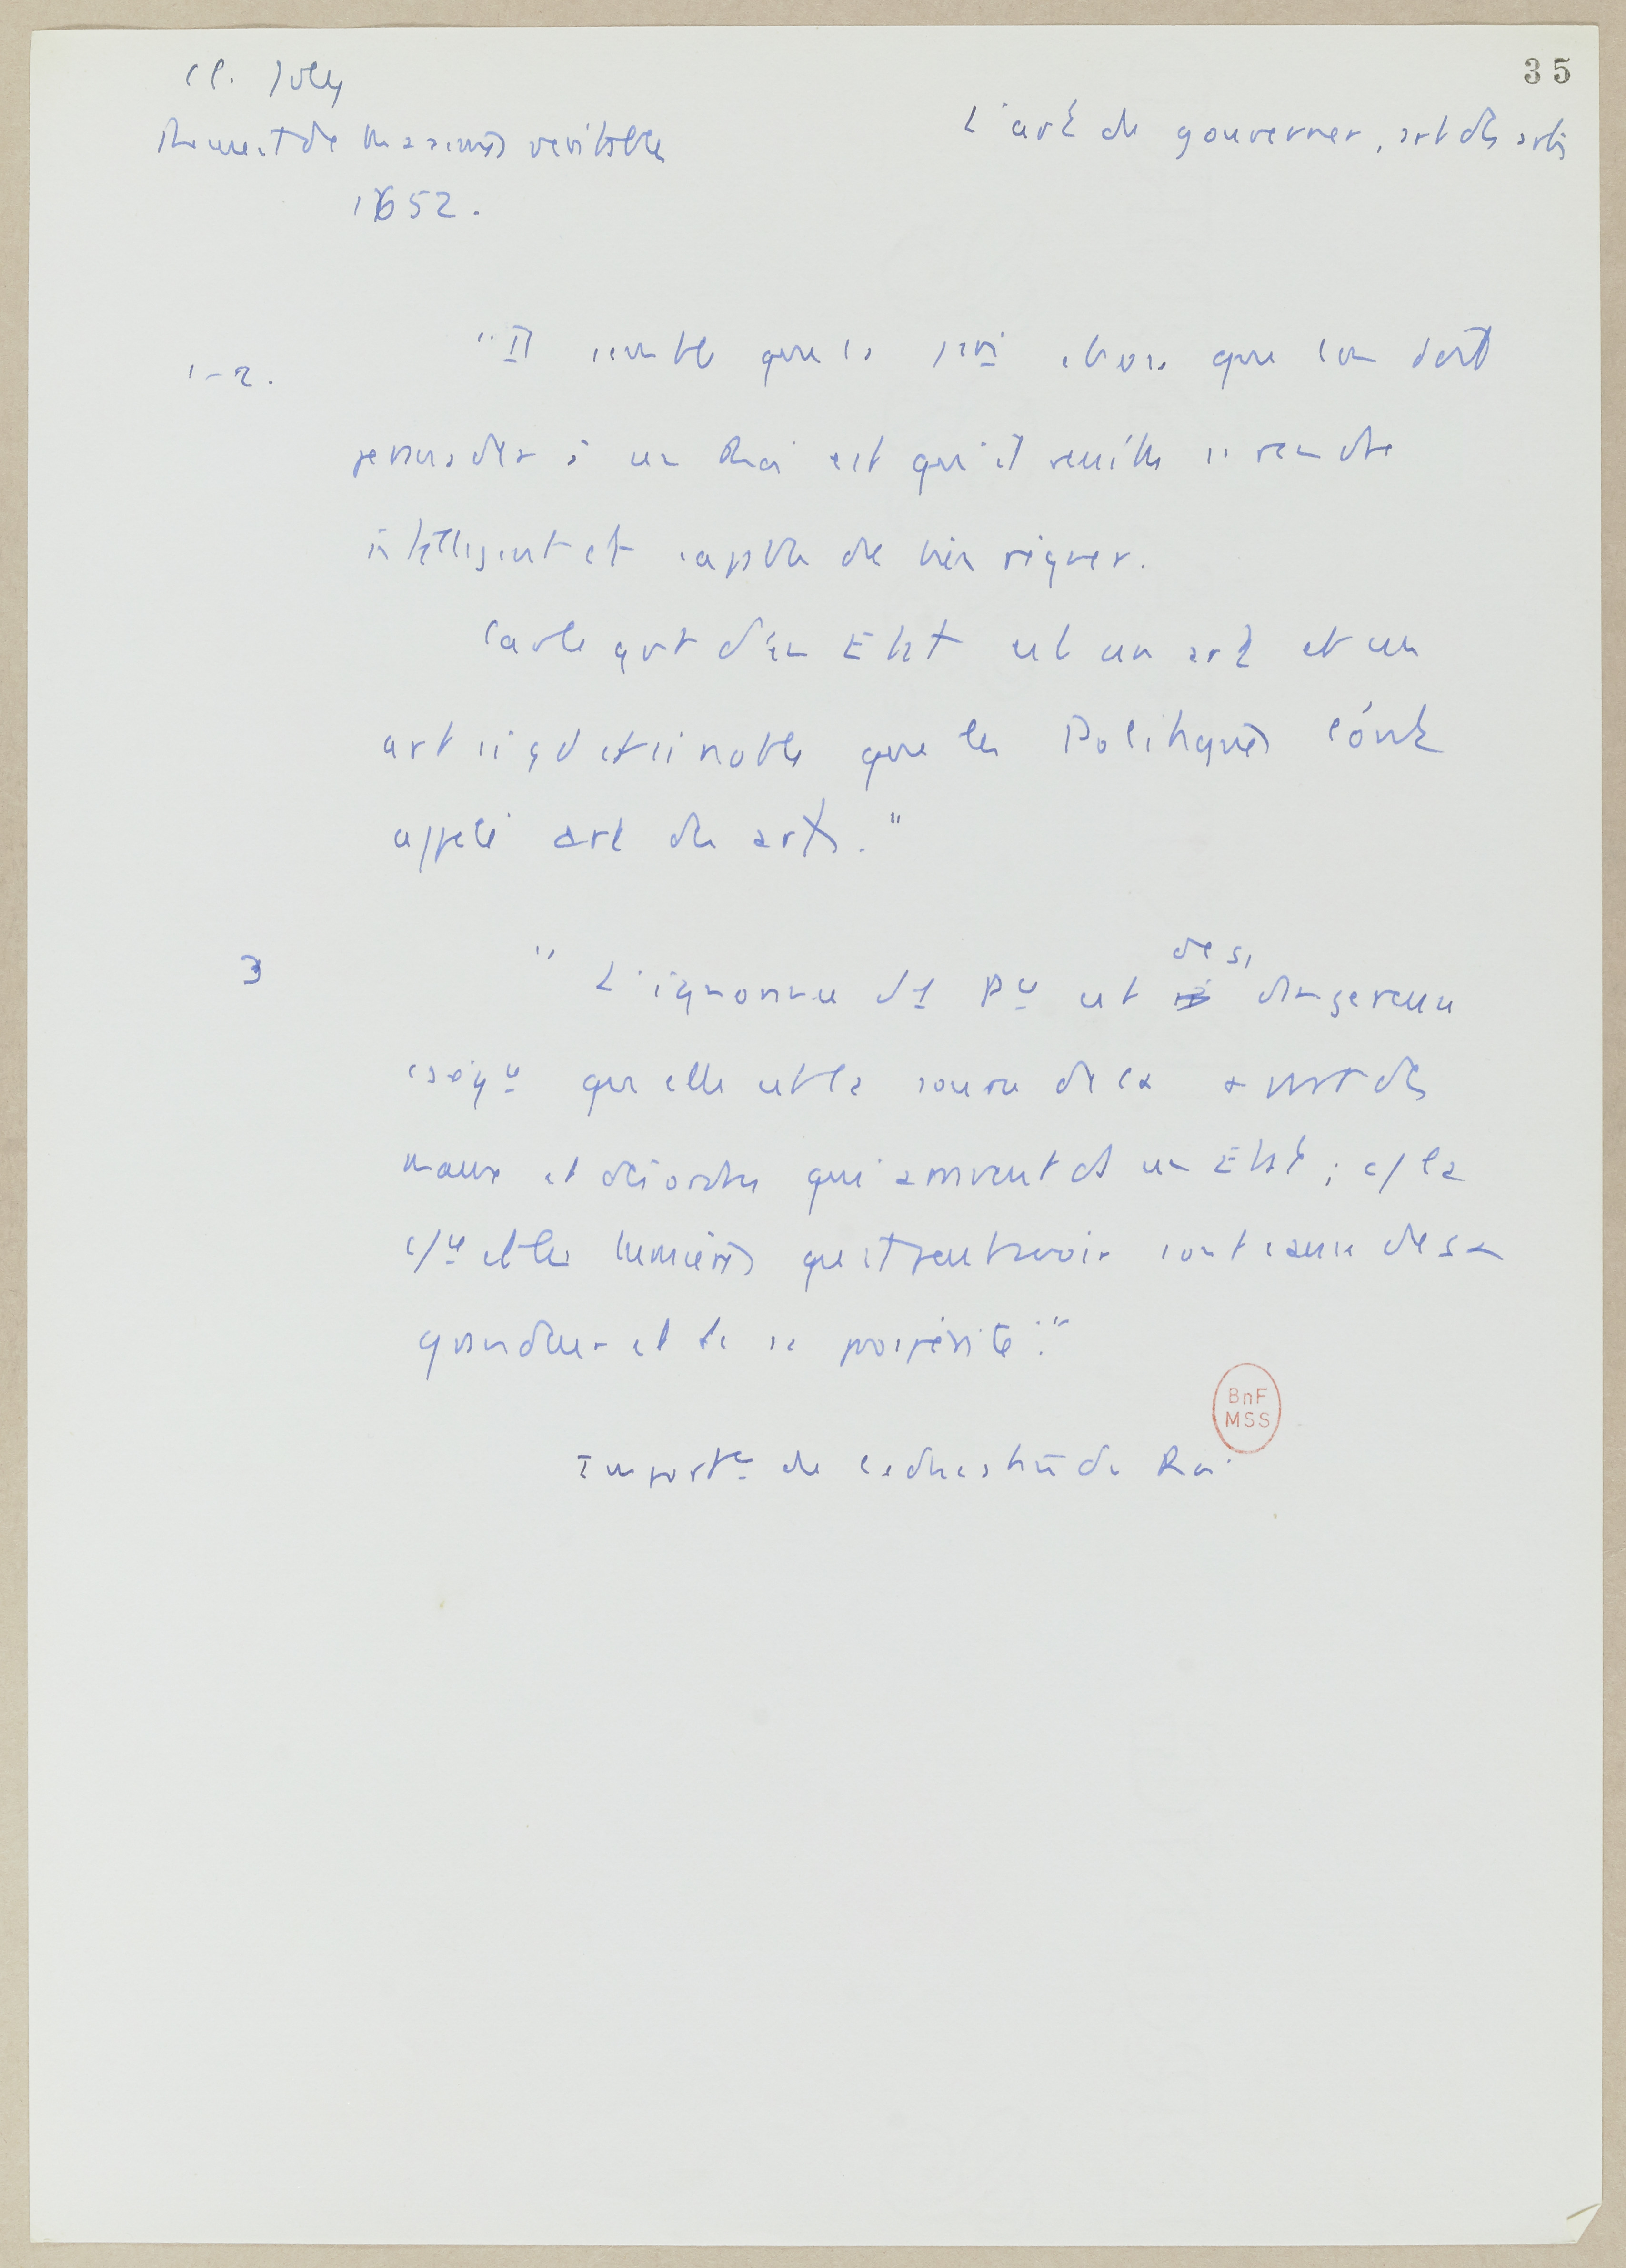 35
Cl. Joly
Recueil de Maximes veritables
1652.
L'art de gouverner, art des arts
1-2.
"Il semble que la 1ere chose que l'on doit
persuader à un Roi est qu'il veuille se rendre
intelligent et capable de bien régner.
Car le gvt d'un Etat est un art et un
art si gd et si noble que les Politiques l'ont
appelé art des arts."
3
"L'ignorance d1 Pce est de si dangereuse
qu'elle est la source de la + part des
maux et désordres qui arrivent ds un Etat ; c/ la
et les lumières qu'il peut avoir sont cause de sa
grandeur et de sa prospérité."
BnF
MSS
Importce de l'éducation du Roi